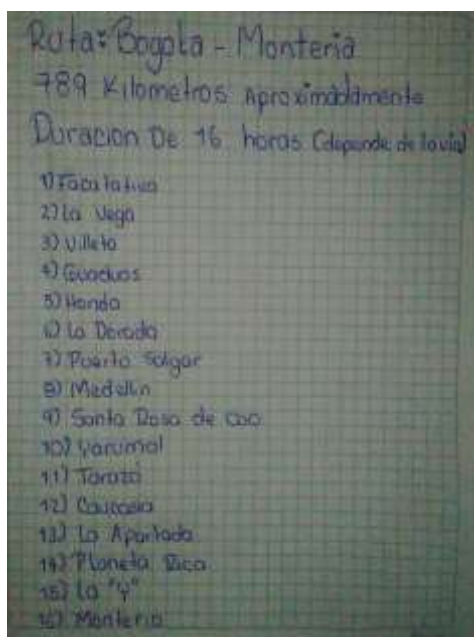 Ruta: Bogota - Monteria
789 Kilometros Aproximadamente
Duracion De 16 horas (depende de la via)
1) Facatativa
2) La Vega
3) Villeta
4) Guaduas
5) Honda
6) La Dorada
7) Puerto Salgar
8) Medellin
9) Santa Rosa de Oso
10) Yarumal
11) Tarazá
12) Caucasia
13) La Apartada
14) Planeta Rica
15) La "Y"
16) Monteria